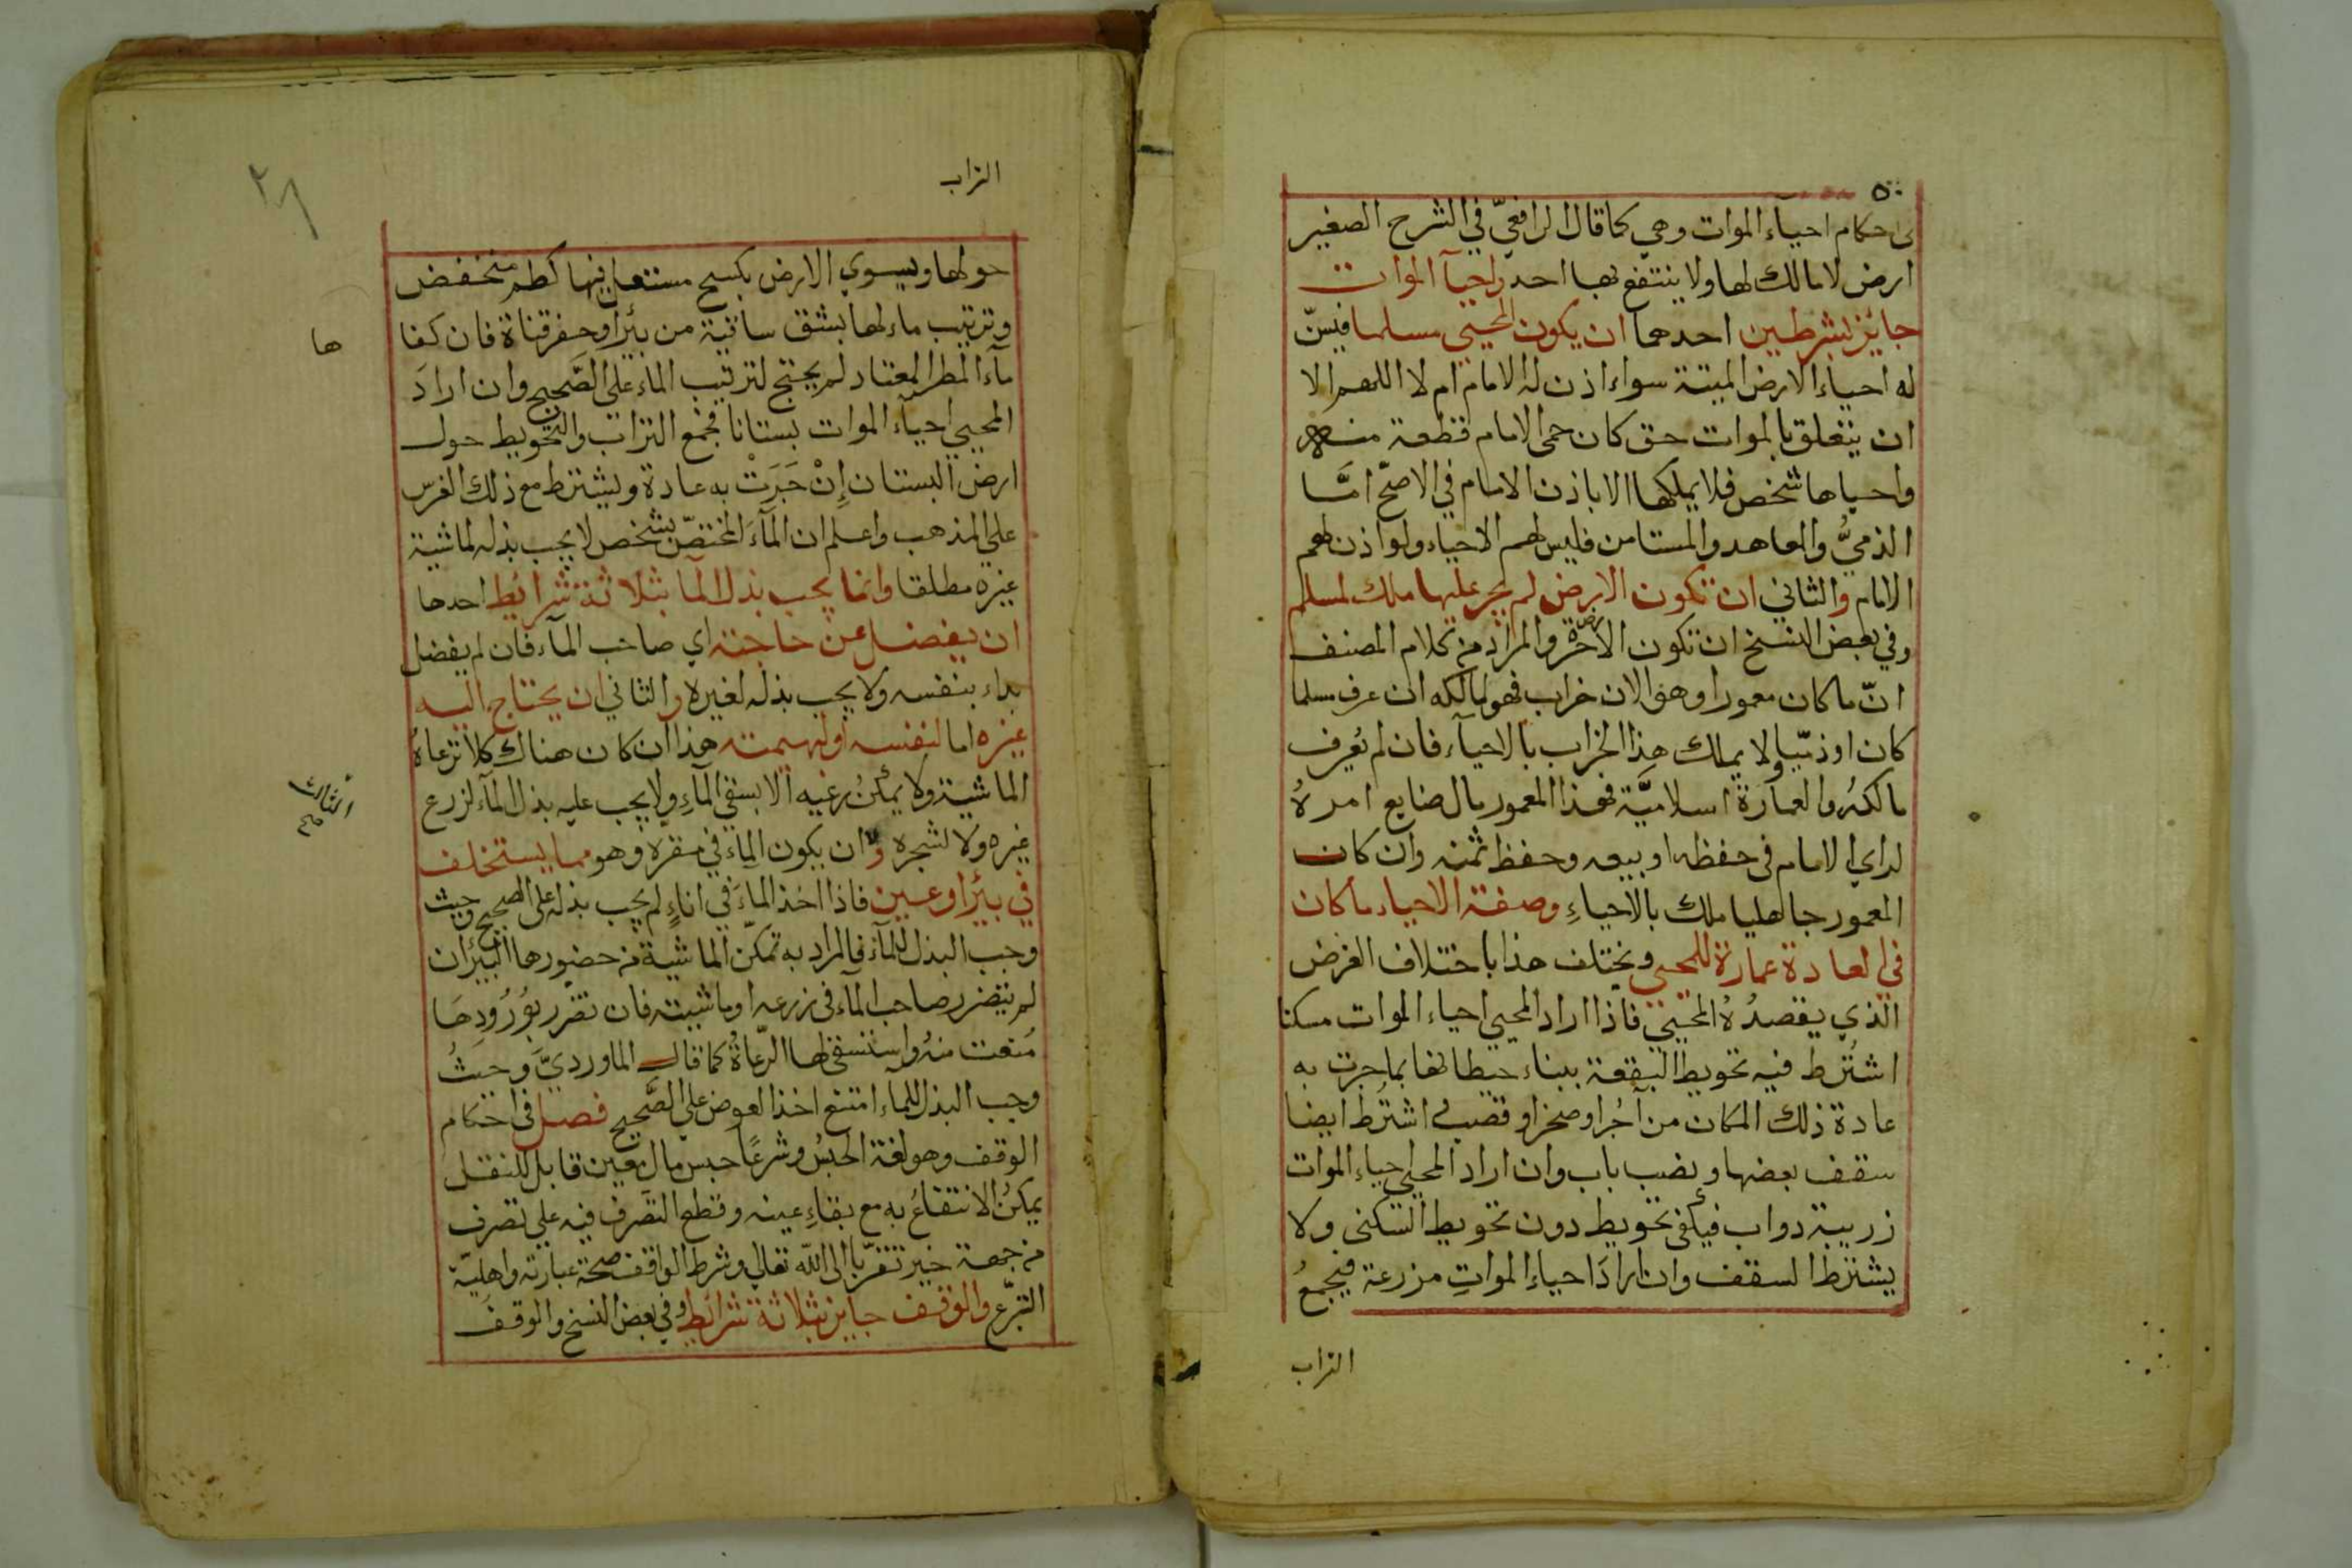 في احكام احيآء الموات وهي كما قال الرافعيّ في الشرح الصغير
ارض لا مالك لها ولا ينتفع بها احد واحيآ الموات
جايز بشرطين احدهما ان يكون المحيي مسلما فيسنّ
له احياء الارض الميتة سواء اذن له الامام ام لا اللهم الا
ان يتعلق بالموات حق كان حمى الامام قطعة منه
واحياها شخص فلا يملكها الا باذن الامام في الاصحّ امَّا
الذميُّ والمعاهد والمستامن فليس لهم الاحياء ولو اذن لهم
الامام والثاني ان تكون الارض لم يجر عليها ملك لمسلم
وفي بعض النسخ ان تكون الارض حرّة والمراد من كلام المصنف
انّ ما كان معمورا وهو الان خراب فهو لمالكه ان عرف مسلما
كان او ذمّيا ولا يملك هذا الخراب بالاحيآء فان لم يُعرف
مالكهُ والعمارة اسلاميَّة فهذا المعمور مال ضايع امرهُ
لراي الامام في حفظه او بيعه وحفظ ثمنه وان كان
المعمور جاهليا ملك بالاحياءِ وصفة الاحياء ما كان
في العادة عمارة للمحيي ويختلف هذا باختلاف الغرض
الذي يقصدُهُ المحيي فاذا اراد المحيي احياء الموات مسكنا
اشتُرط فيه تحويط البقعة ببناء حيطانها بما جرت به
عادة ذلك المكان من آجُر او صخر او قصب اشتُرط ايضا
سقف بعضها ونصب باب وان اراد المحيي احياء الموات
زريبة دواب فيكفي تحويط دون تحويط السكنى ولا
يشترط السقف وان ارادَ احياء المواتِ مزرعة فيجمعُ
التراب
التراب
٢٦
حولها ويسوي الارض بكسح مستعل فيها كطم منخفض
وترتيب ماء لها بشق ساقية من بئر او حفر قناة فان كفا
ها
مآء المطر المعتاد لم يحتج لترتيب الماء على الصَّحيح وان ارادَ
المحيي احيآء الموات بستانا فجمع التراب والتحويط حول
ارض البستان إنْ جَرَتْ به عادة ويشترط مع ذلك الغرس
على المذهب واعلم ان المآءَ المختصّ بشخص لا يجب بذله لماشية
غيره مطلقا وانما يجب بذل المآ بثلاثة شرائط احدها
ان يفضل عن حاجته اي صاحب المآء فان لم يفضل
بداء بنفسه ولا يجب بذله لغيره والثاني ان يحتاج اليه
غيره اما لنفسه او لبهيمته هذا ان كان هناك كلأ ترعاهُ
الماشية ولا يمكنُ رعيه الا بسقي المآءِ ولا يجب عليه بذل المآء لزرع
الثالث
صح
غيره ولا لشجره و ان يكون الماء في مقرّه وهو مما يستخلف
في بئر او عين فاذا اخذ الماءَ في اناءٍ لم يجب بذله على الصحيح وحيث
وجب البذل للمآء فالمراد به تمكّن الماشية من حضورها البئر ان
لم يتضرر صاحب المآء في زرعه او ماشيته فان تضرر بوُرُودِهَا
مُنعت منهُ واستسقى لها الرّعاةُ كما قال الماورديَّ وحيثُ
وجب البذل للماء امتنع اخذ العوض على الصَّحيح فصل في احكام
الوقف وهو لغة الحبسُ وشرعًا حبس مال معين قابل للنقل
يمكنُ الانتفاعُ به مع بقاءِ عينه وقطع التصرف فيه على تصرف
من جهة خير تقرّبا الى الله تعالي وشرط الواقف صحة عبارته واهليّة
التبرّع والوقف جايز بثلاثة شرائط وفي بعض النسخ والوقفَ